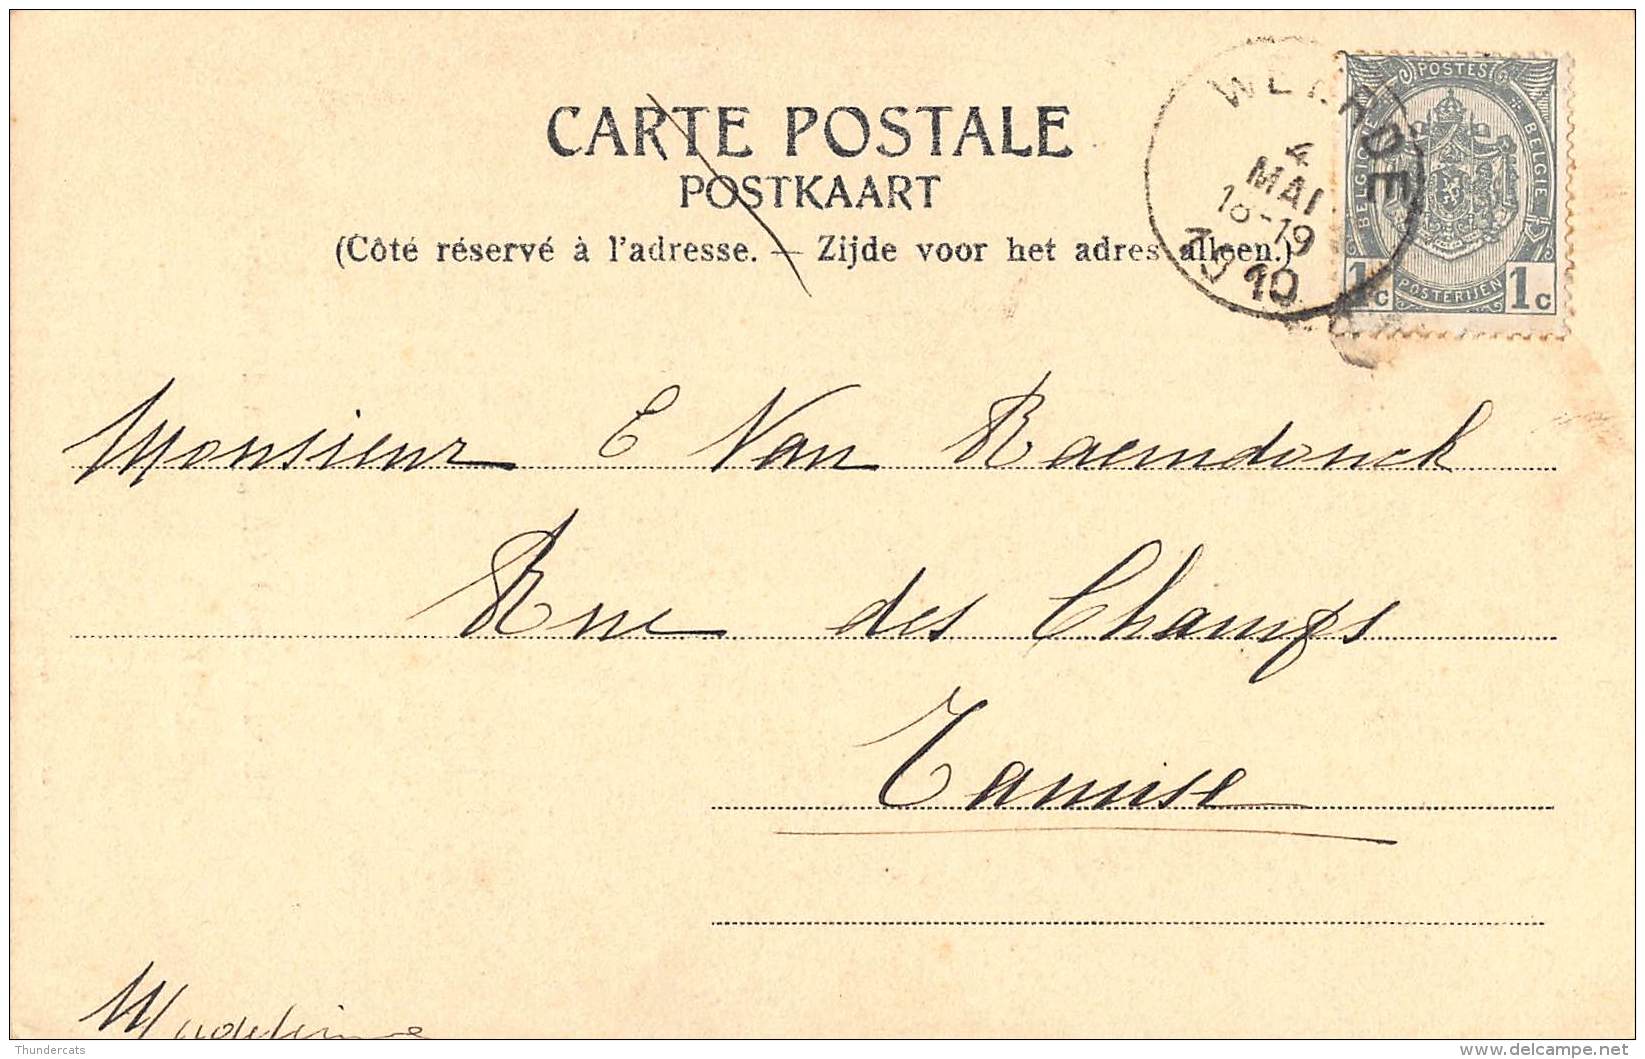 CARTE POSTALE
POSTKAART
(Côté réservé à l'adresse. — Zijde voor het adres alleen.)
POSTES
BELGIQUE
BELGIE
POSTERIJEN
1c 1c
4
MAI
18-19
10
Monsieur E Van Raemdonck
Rue des Champs
Tamise
Madeleine
Thundercats
delcampe.net